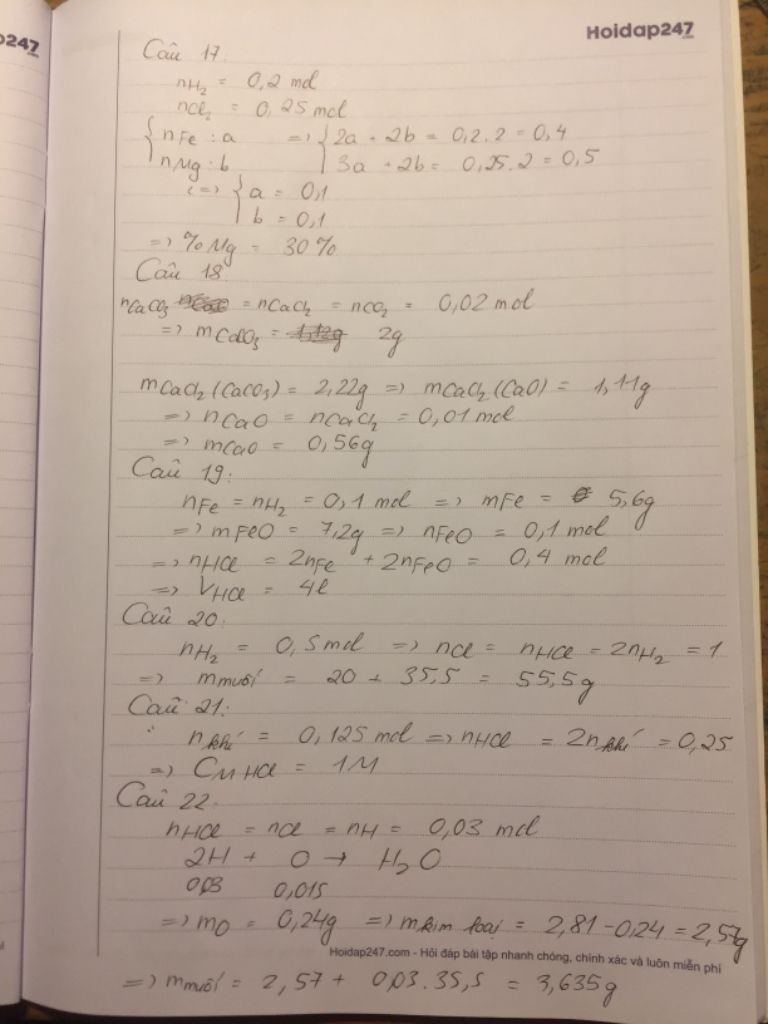 Hoidap247
p247
Câu 17:
nH₂ = 0,2 mol
nCl₂ = 0,25 mol
{ nFe : a => { 2a + 2b = 0,2.2 = 0,4
nMg : b 3a + 2b = 0,25.2 = 0,5
<=> { a = 0,1
b = 0,1
=> %Mg = 30%
Câu 18
nCaCO₃ = nCaCl₂ = nCO₂ = 0,02 mol
=> mCaCO₃ = 1,12g 2g
mCaCl₂ (CaCO₃) = 2,22g => mCaCl₂ (CaO) = 1,11g
=> nCaO = nCaCl₂ = 0,01 mol
=> mCaO = 0,56g
Câu 19:
nFe = nH₂ = 0,1 mol => mFe = 5,6g
=> mFeO = 7,2g => nFeO = 0,1 mol
=> nHCl = 2nFe + 2nFeO = 0,4 mol
=> VHCl = 4l
Câu 20:
nH₂ = 0,5 mol => nCl = nHCl = 2nH₂ = 1
=> mmuối = 20 + 35,5 = 55,5g
Câu 21:
nkhí = 0,125 mol => nHCl = 2nkhí = 0,25
=> CM HCl = 1M
Câu 22:
nHCl = nCl = nH = 0,03 mol
2H + O → H₂O
0,03 0,015
=> mO = 0,24g => mkim loại = 2,81 - 0,24 = 2,57g
Hoidap247.com - Hỏi đáp bài tập nhanh chóng, chính xác và luôn miễn phí
=> mmuối = 2,57 + 0,03.35,5 = 3,635g